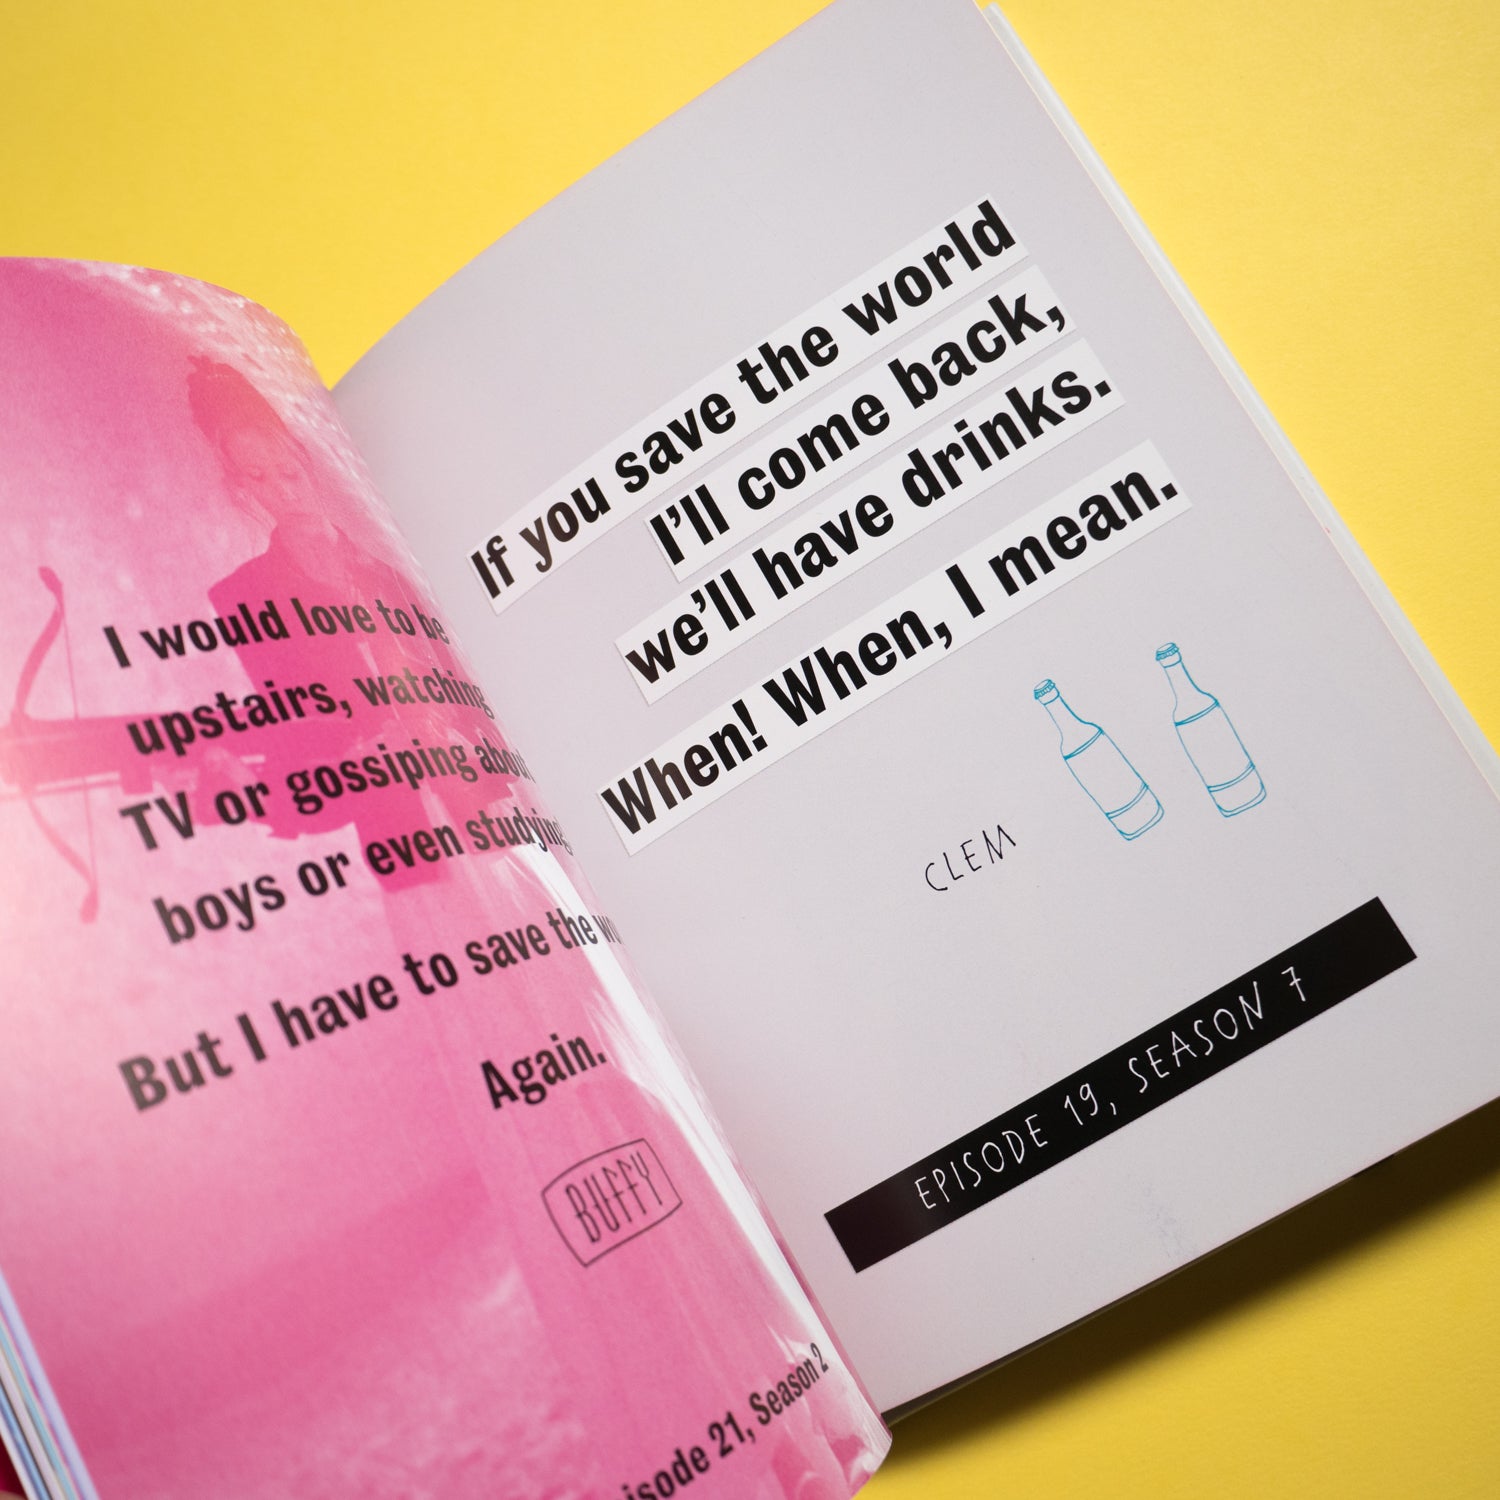 I would love to be
upstairs, watching
TV or gossiping about
boys or even studying
But I have to save the
Again.
BUFFY
Episode 21, Season 2
If you save the world
I'll come back,
we'll have drinks.
When! When, I mean.
CLEM
EPISODE 19, SEASON 7